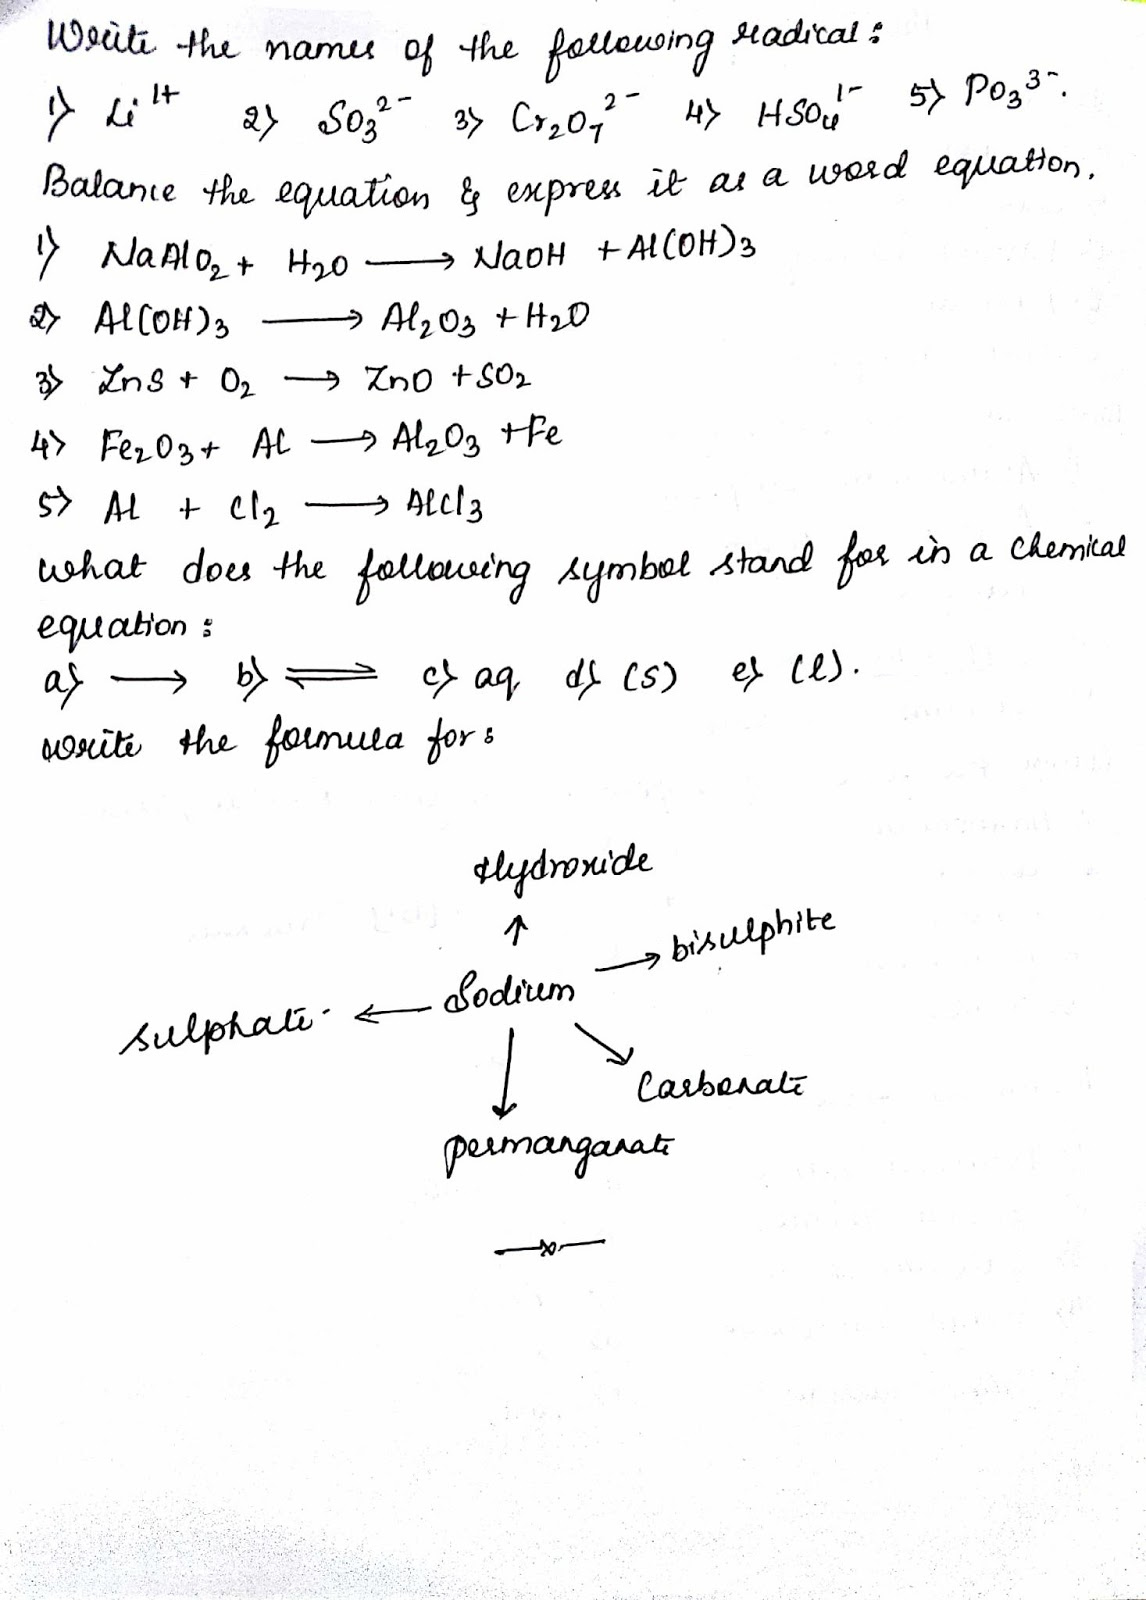 Write the names of the following radical :
1) Li¹⁺ 2) SO₃²⁻ 3) Cr₂O₇²⁻ 4) HSO₄¹⁻ 5) PO₃³⁻.
Balance the equation & express it as a word equation.
1) NaAlO₂ + H₂O ⟶ NaOH + Al(OH)₃
2) Al(OH)₃ ⟶ Al₂O₃ + H₂O
3) ZnS + O₂ ⟶ ZnO + SO₂
4) Fe₂O₃ + Al ⟶ Al₂O₃ + Fe
5) Al + Cl₂ ⟶ AlCl₃
what does the following symbol stand for in a chemical
equation :
a) ⟶ b) ⇌ c) aq d) (s) e) (l).
write the formula for :
Hydroxide
↑
→ bisulphite
sulphate ← Sodium
↓ ↘
Carbonate
permanganate